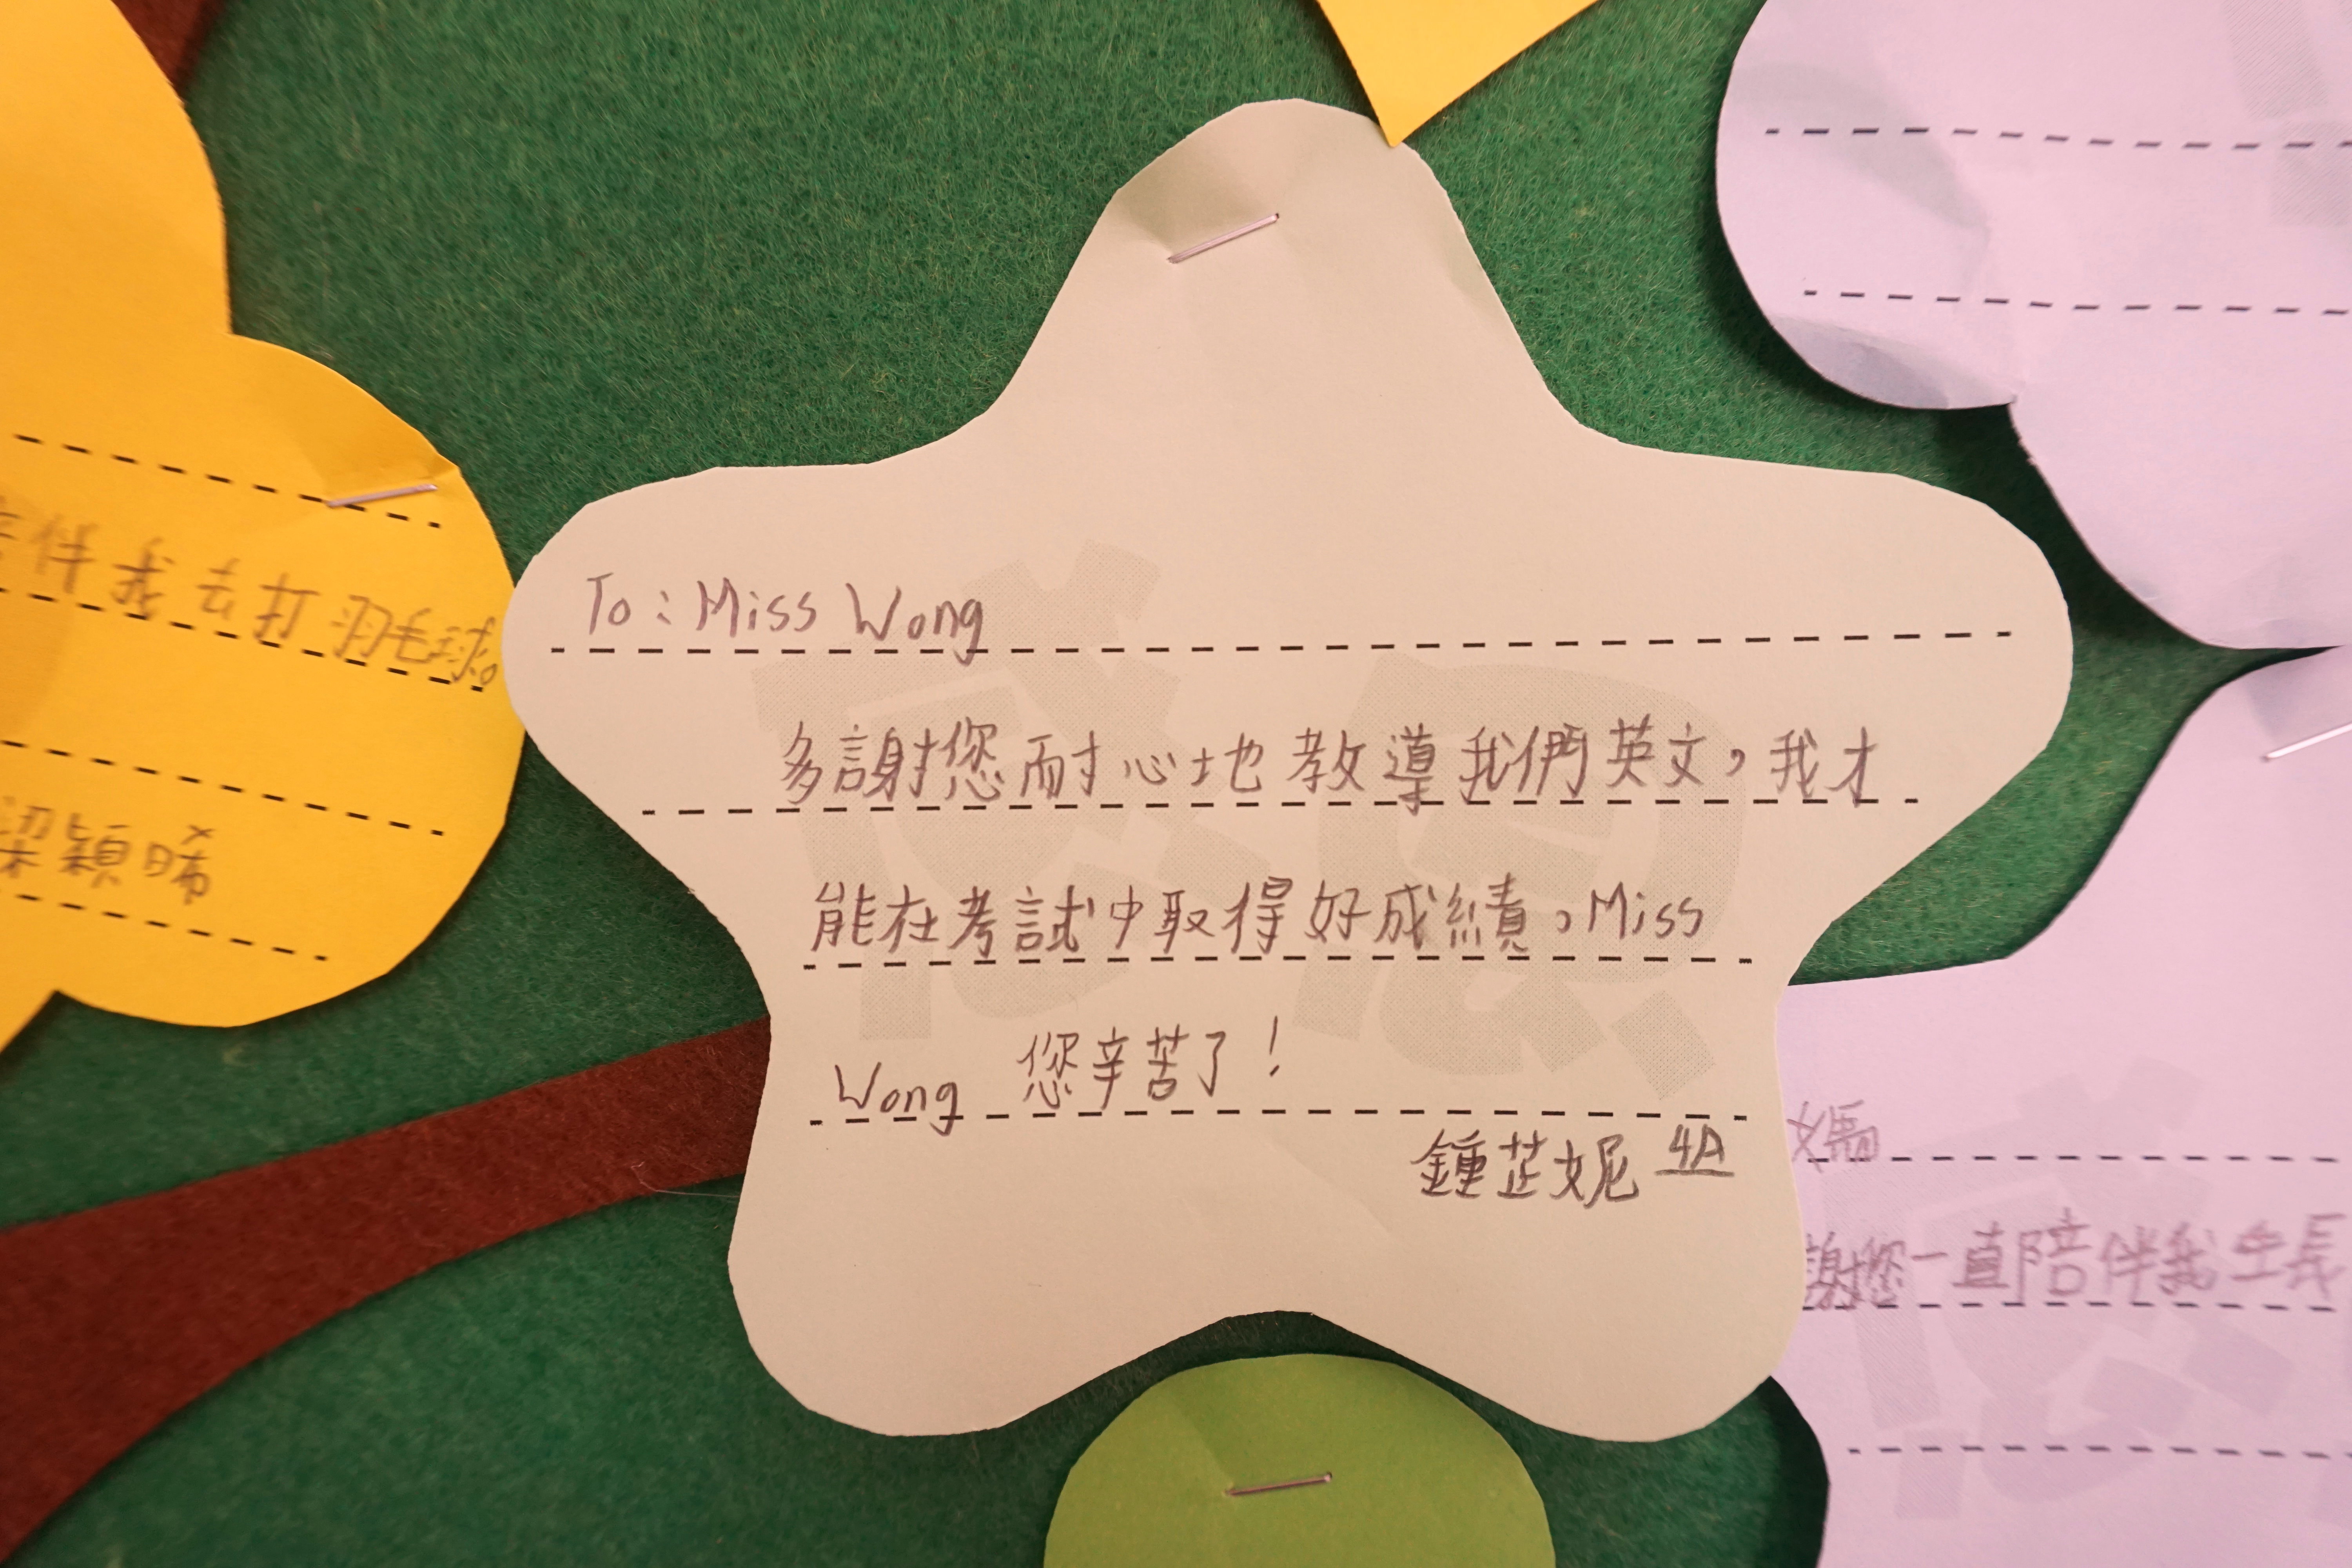 伴我去打羽毛球。
梁穎晞
感恩
To：Miss Wong
多謝您耐心地教導我們英文，我才
能在考試中取得好成績，Miss
Wong 您辛苦了！
鍾芷妮 4A
媽
謝您一直陪伴我生長